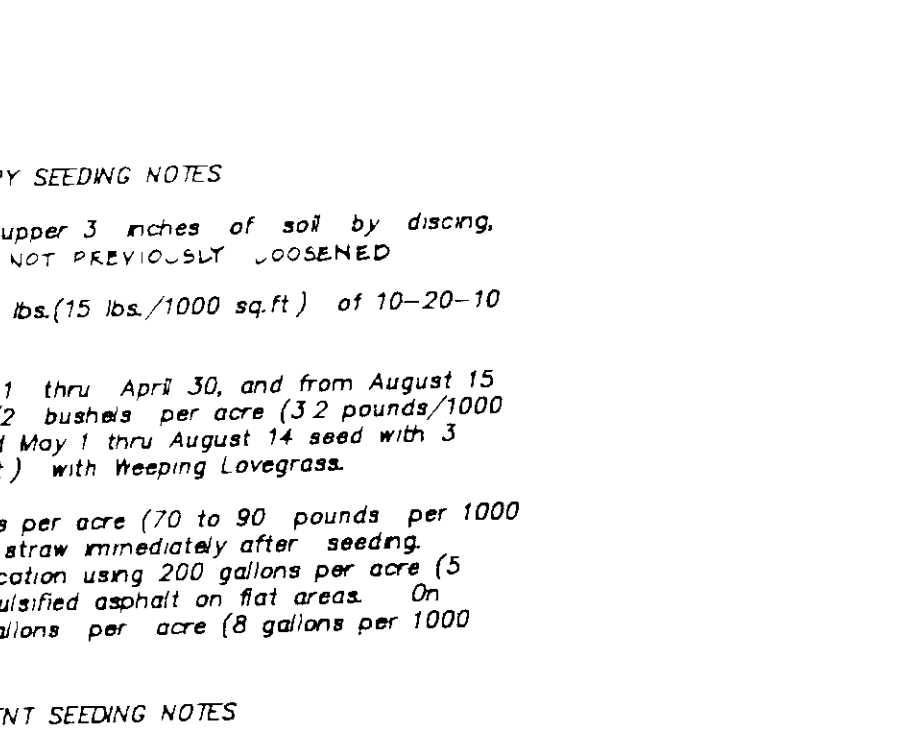 SEEDING NOTES
upper 3 inches of soil by discing,
NOT PREVIOUSLY LOOSENED
lbs.(15 lbs./1000 sq.ft ) of 10-20-10
1 thru April 30, and from August 15
/2 bushels per acre (3 2 pounds/1000
May 1 thru August 14 seed with 3
) with Weeping Lovegrass.
per acre (70 to 90 pounds per 1000
straw immediately after seeding.
using 200 gallons per acre (5
asphalt on flat areas. On
per acre (8 gallons per 1000
SEEDING NOTES